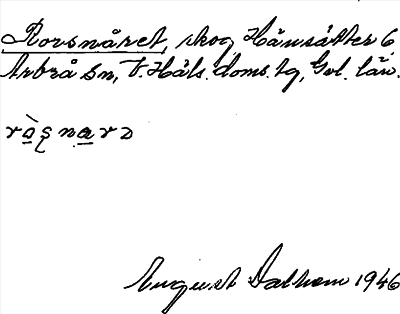 Rorsnåret, skog Hänsätter 6,
Arbrå sn, V. Häls. doms. tg, Gvl. län.
August Dalhem 1946